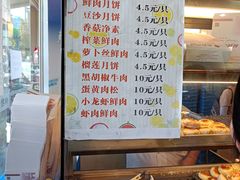 鲜肉月饼 4.5元/只
豆沙月饼 4.5元/只
香菇净素 4.5元/只
榨菜鲜肉 4.5元/只
萝卜丝鲜肉 4.5元/只
榴莲月饼 4.5元/只
黑胡椒牛肉 10元/只
蛋黄肉松 10元/只
小龙虾鲜肉 10元/只
虾肉鲜肉 10元/只